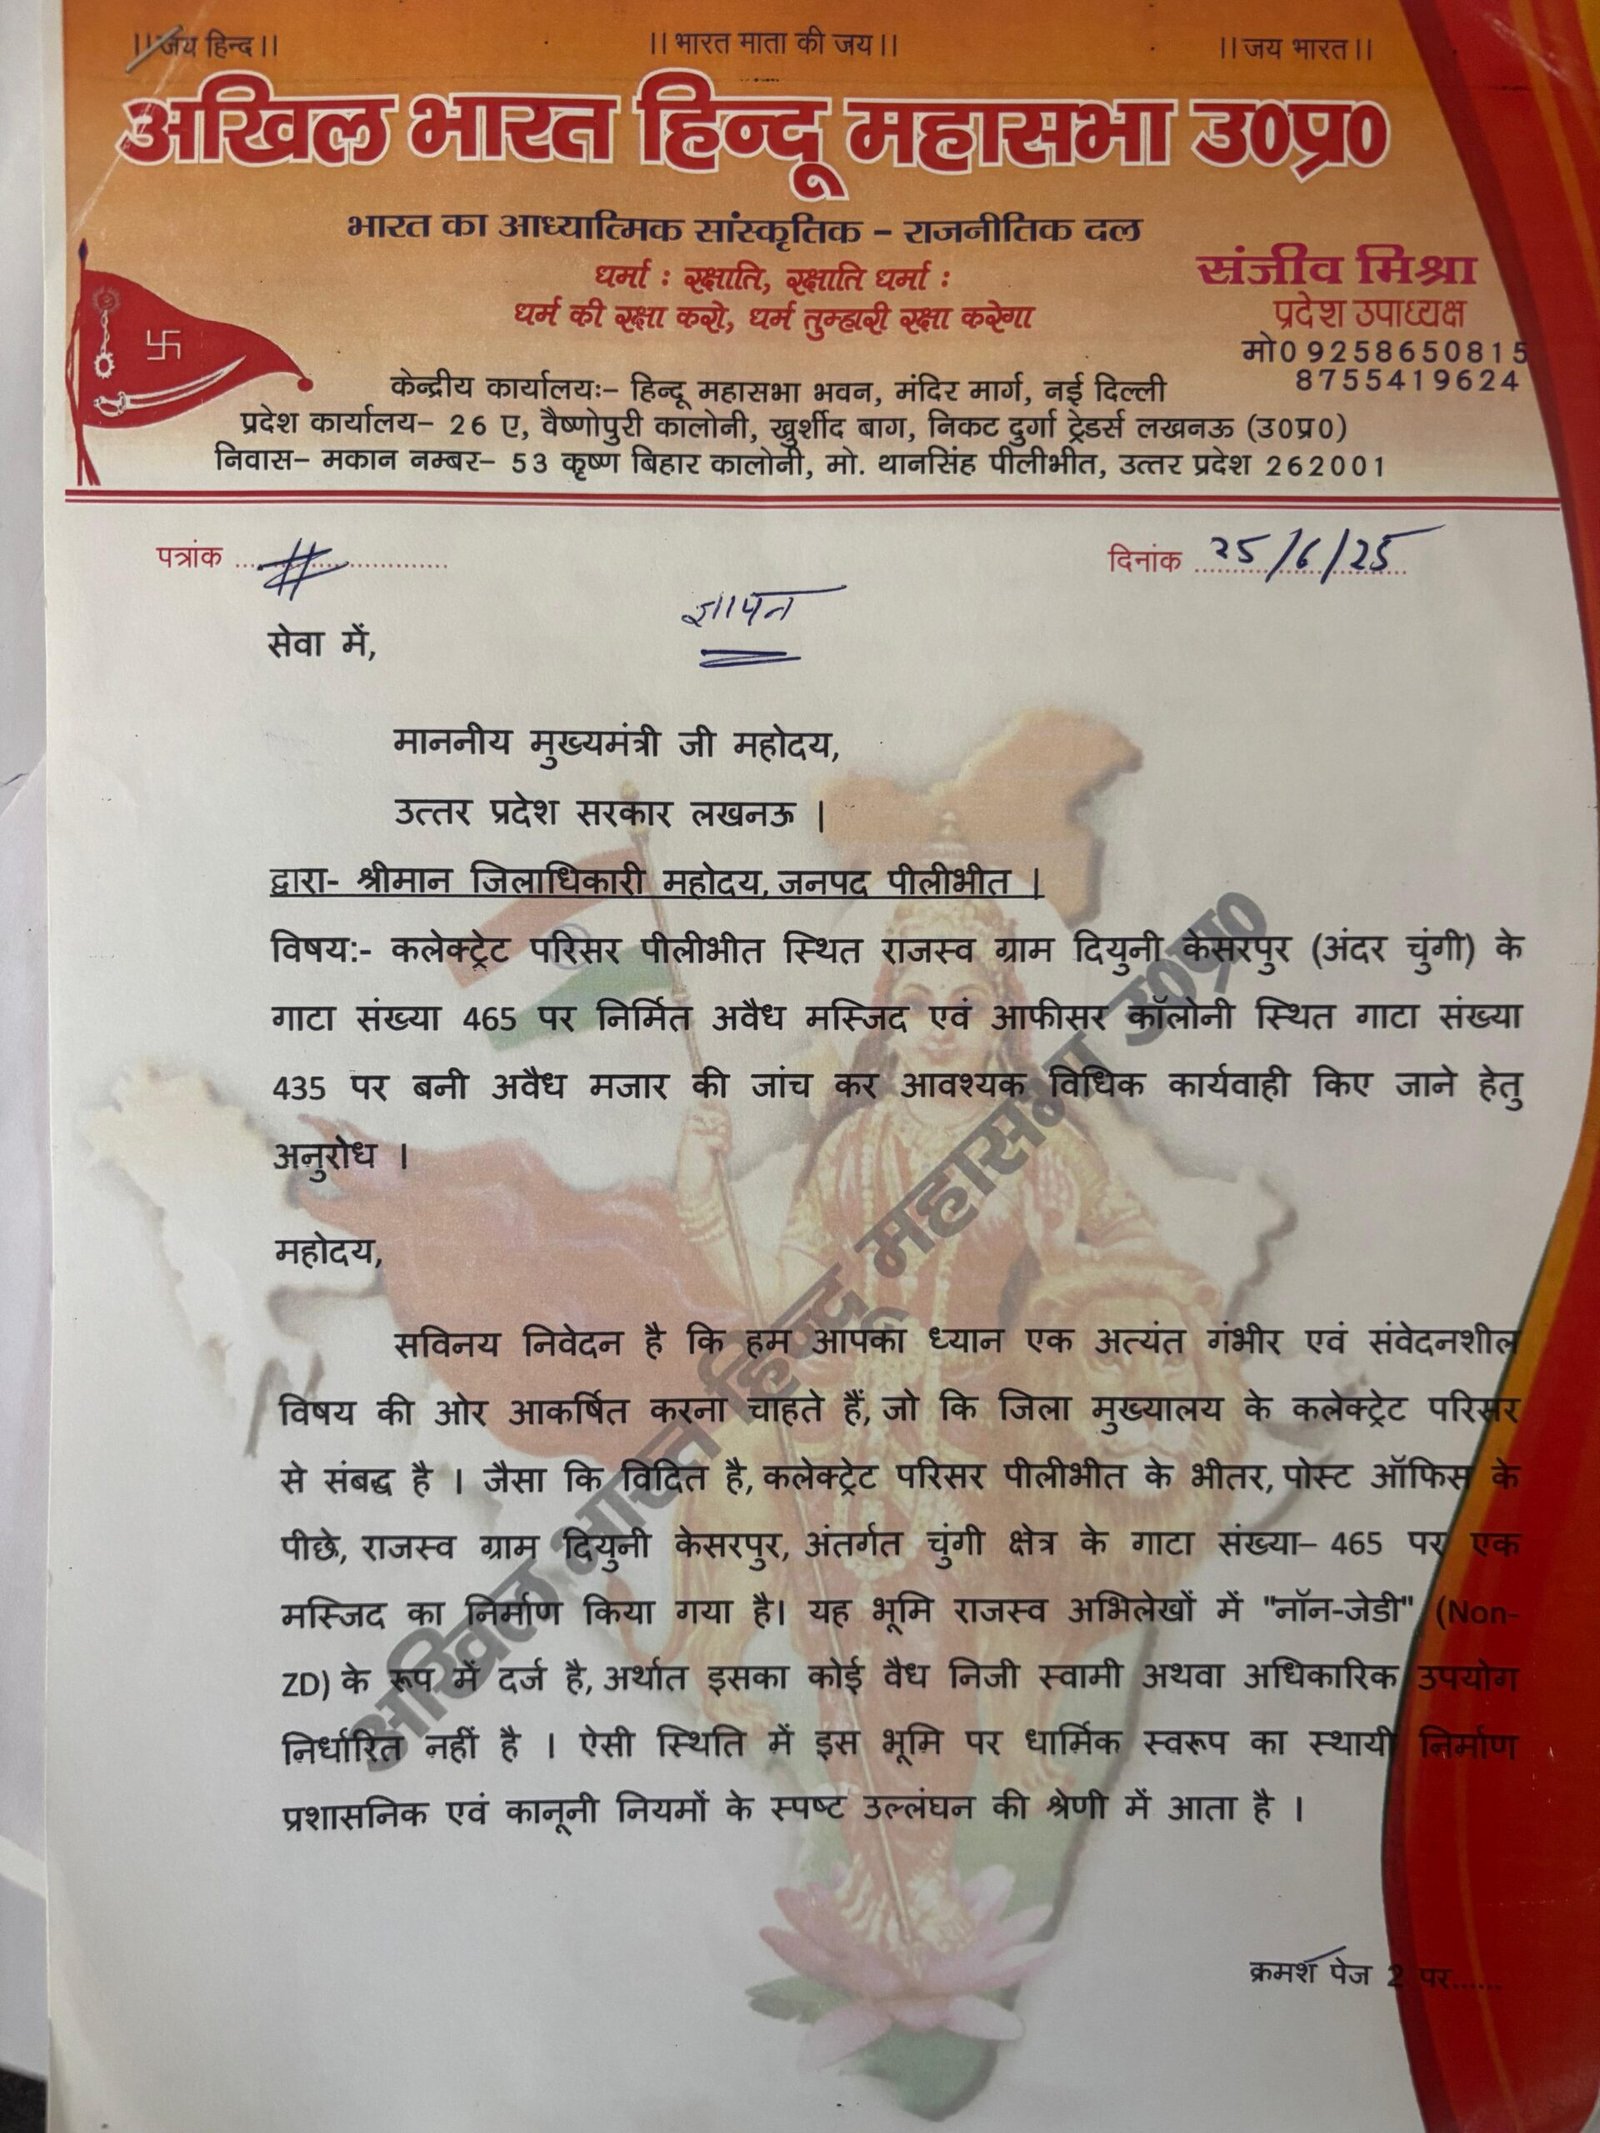 ।।जय हिन्द।। ।।भारत माता की जय।। ।।जय भारत।।
अखिल भारत हिन्दू महासभा उ०प्र०
भारत का आध्यात्मिक सांस्कृतिक - राजनीतिक दल
संजीव मिश्रा
धर्मा : रक्षाति, रक्षाति धर्मा :
प्रदेश उपाध्यक्ष
धर्म की रक्षा करो, धर्म तुम्हारी रक्षा करेगा
मो0 9258650815
8755419624
केन्द्रीय कार्यालयः– हिन्दू महासभा भवन, मंदिर मार्ग, नई दिल्ली
प्रदेश कार्यालय– 26 ए, वैष्णोपुरी कालोनी, खुर्शीद बाग, निकट दुर्गा ट्रेडर्स लखनऊ (उ0प्र0)
निवास– मकान नम्बर– 53 कृष्ण बिहार कालोनी, मो. थानसिंह पीलीभीत, उत्तर प्रदेश 262001
पत्रांक ........................ दिनांक 25/6/25
ज्ञापन
सेवा में,
माननीय मुख्यमंत्री जी महोदय,
उत्तर प्रदेश सरकार लखनऊ |
द्वारा- श्रीमान जिलाधिकारी महोदय, जनपद पीलीभीत |
विषय:- कलेक्ट्रेट परिसर पीलीभीत स्थित राजस्व ग्राम दियुनी केसरपुर (अंदर चुंगी) के
गाटा संख्या 465 पर निर्मित अवैध मस्जिद एवं आफीसर कॉलोनी स्थित गाटा संख्या
435 पर बनी अवैध मजार की जांच कर आवश्यक विधिक कार्यवाही किए जाने हेतु
अनुरोध ।
महोदय,
सविनय निवेदन है कि हम आपका ध्यान एक अत्यंत गंभीर एवं संवेदनशील
विषय की ओर आकर्षित करना चाहते हैं, जो कि जिला मुख्यालय के कलेक्ट्रेट परिसर
से संबद्ध है । जैसा कि विदित है, कलेक्ट्रेट परिसर पीलीभीत के भीतर, पोस्ट ऑफिस के
पीछे, राजस्व ग्राम दियुनी केसरपुर, अंतर्गत चुंगी क्षेत्र के गाटा संख्या– 465 पर एक
मस्जिद का निर्माण किया गया है। यह भूमि राजस्व अभिलेखों में "नॉन-जेडी" (Non-
ZD) के रूप में दर्ज है, अर्थात इसका कोई वैध निजी स्वामी अथवा अधिकारिक उपयोग
निर्धारित नहीं है । ऐसी स्थिति में इस भूमि पर धार्मिक स्वरूप का स्थायी निर्माण
प्रशासनिक एवं कानूनी नियमों के स्पष्ट उल्लंघन की श्रेणी में आता है ।
अखिल भारत हिन्दू महासभा उ०प्र०
क्रमश पेज 2 पर......